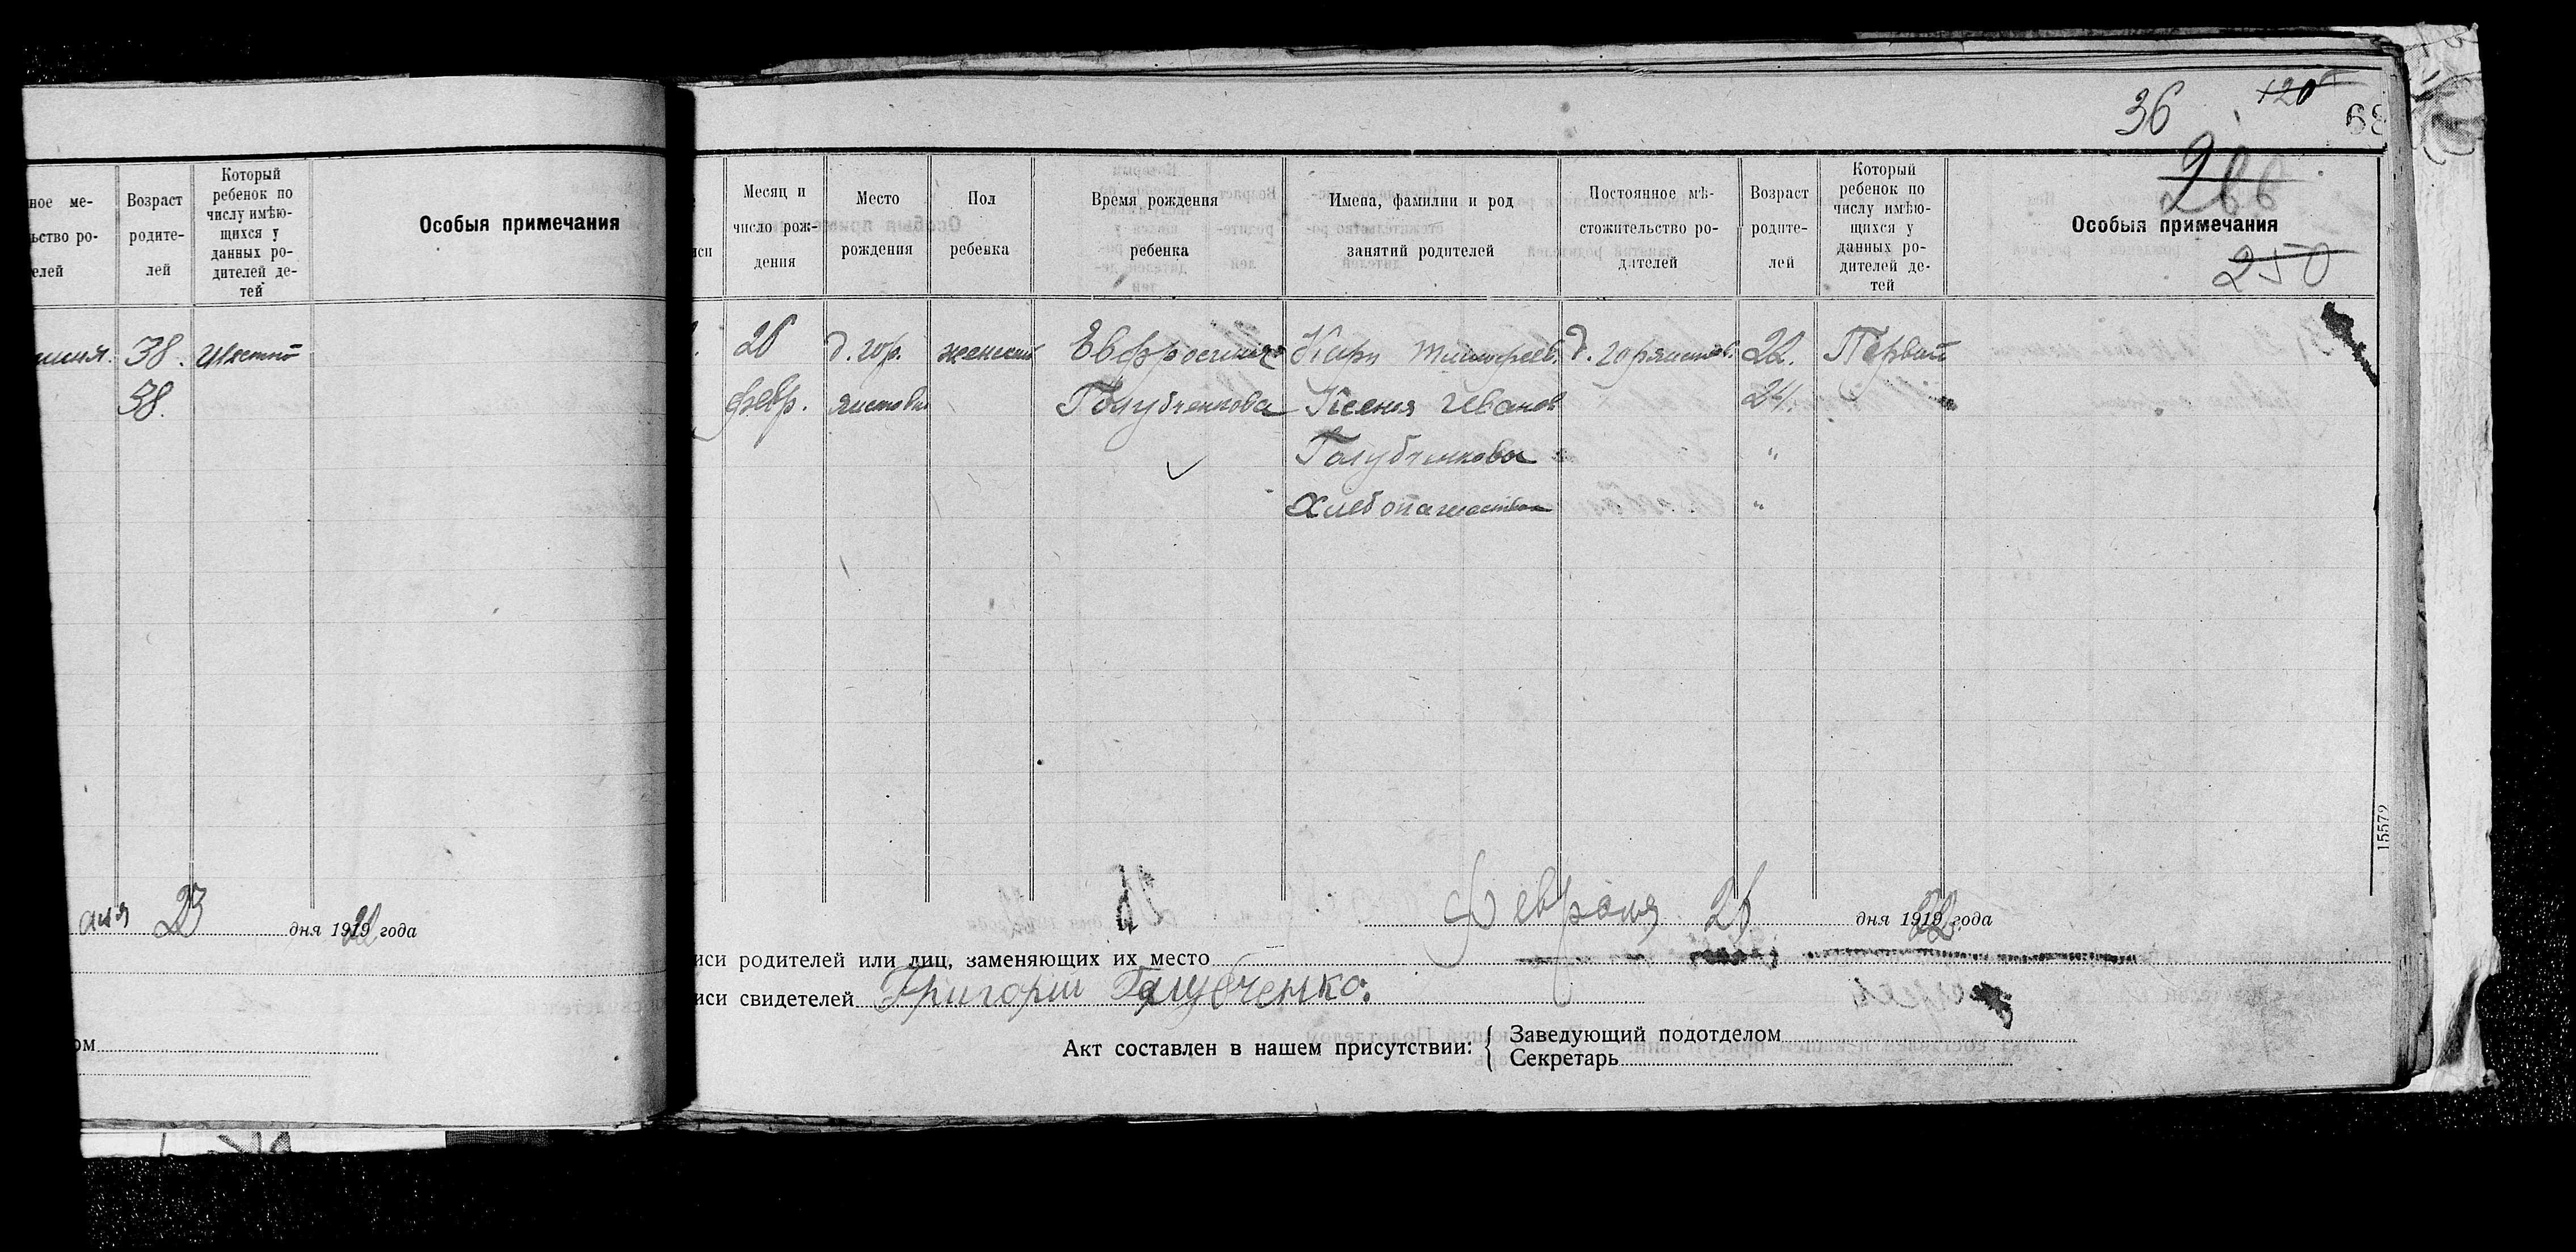 36 120 68
266
250
ное ме-
ьство ро-
елей
Возраст
родите-
лей
Который
ребенок по
числу имѣю-
щихся у
данных ро-
дителей де-
тей
Особыя примечания
38. Шестой
38.
23 дня 1919 22 года
ом
Месяц и
число рож-
дения
Место
рождения
Пол
ребенка
Время рождения
ребенка
Имена, фамилии и род
занятий родителей
Постоянное мѣ-
стожительство ро-
дителей
Возраст
родите-
лей
Который
ребенок по
числу имѣю-
щихся у
данных ро-
дителей де-
тей
Особыя примечания
д. гор. женский Евфросиния Карп Тимофеев. 22. Первый
февр. Голубченкова Ксения Иванов 24.
Голубченковы "
Хлебопашество "
15579
Февраля 26 дня 1919 22 года
иси родителей или лиц, заменяющих их место
иси свидетелей Григорий Голубченко.
Акт составлен в нашем присутствии: { Заведующий подотделом
Секретарь